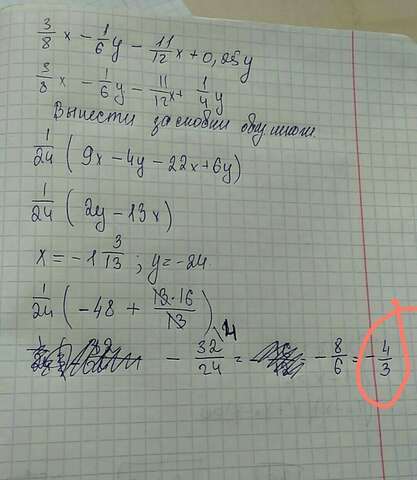 3/8 x - 1/6 y - 11/12 x + 0,25y
3/8 x - 1/6 y - 11/12 x + 1/4 y
Вынести за скобки
1/24 (9x - 4y - 22x + 6y)
1/24 (2y - 13x)
x = -1 3/13 ; y = -24
1/24 (-48 + 13·16/13)
- 32/24 = - 8/6 = - 4/3